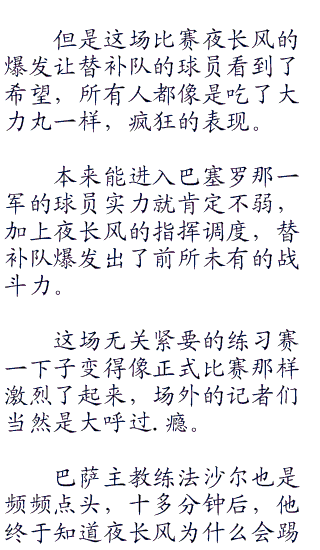 但是这场比赛夜长风的
爆发让替补队的球员看到了
希望，所有人都像是吃了大
力丸一样，疯狂的表现。
本来能进入巴塞罗那一
军的球员实力就肯定不弱，
加上夜长风的指挥调度，替
补队爆发出了前所未有的战
斗力。
这场无关紧要的练习赛
一下子变得像正式比赛那样
激烈了起来，场外的记者们
当然是大呼过.瘾。
巴萨主教练法沙尔也是
频频点头，十多分钟后，他
终于知道夜长风为什么会踢